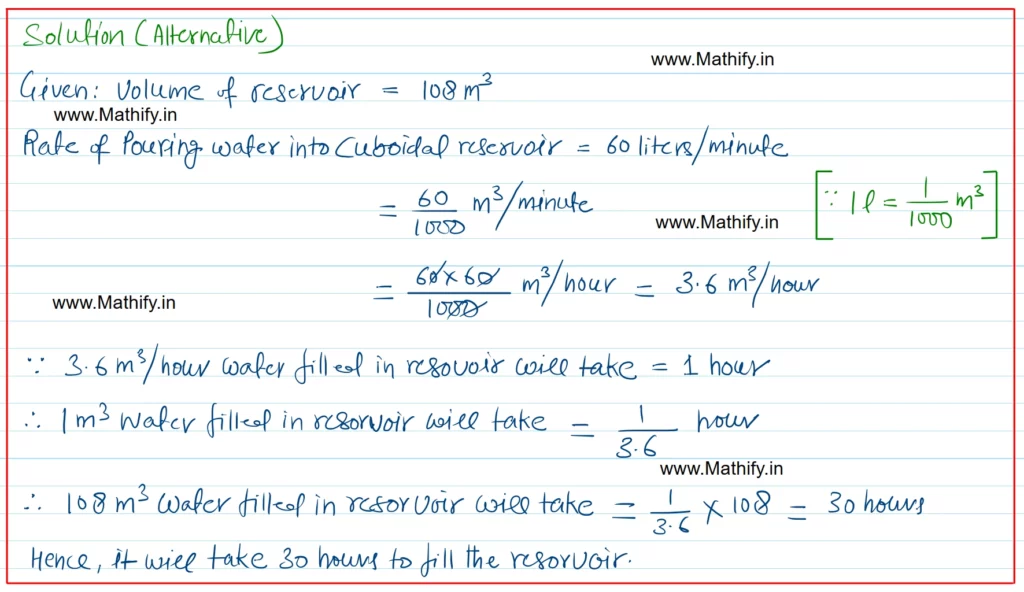 Solution (Alternative)
www.Mathify.in
Given: Volume of reservoir = 108 m³
www.Mathify.in
Rate of Pouring water into Cuboidal reservoir = 60 liters/minute
= 60/1000 m³/minute [∵ 1 l = 1/1000 m³]
www.Mathify.in
= 60×60/1000 m³/hour = 3.6 m³/hour
www.Mathify.in
∵ 3.6 m³/hour water filled in resouoir will take = 1 hour
∴ 1 m³ water filled in resorvoir will take = 1/3.6 hour
www.Mathify.in
∴ 108 m³ water filled in resorvoir will take = 1/3.6 × 108 = 30 hours
Hence, it will take 30 hours to fill the resorvoir.